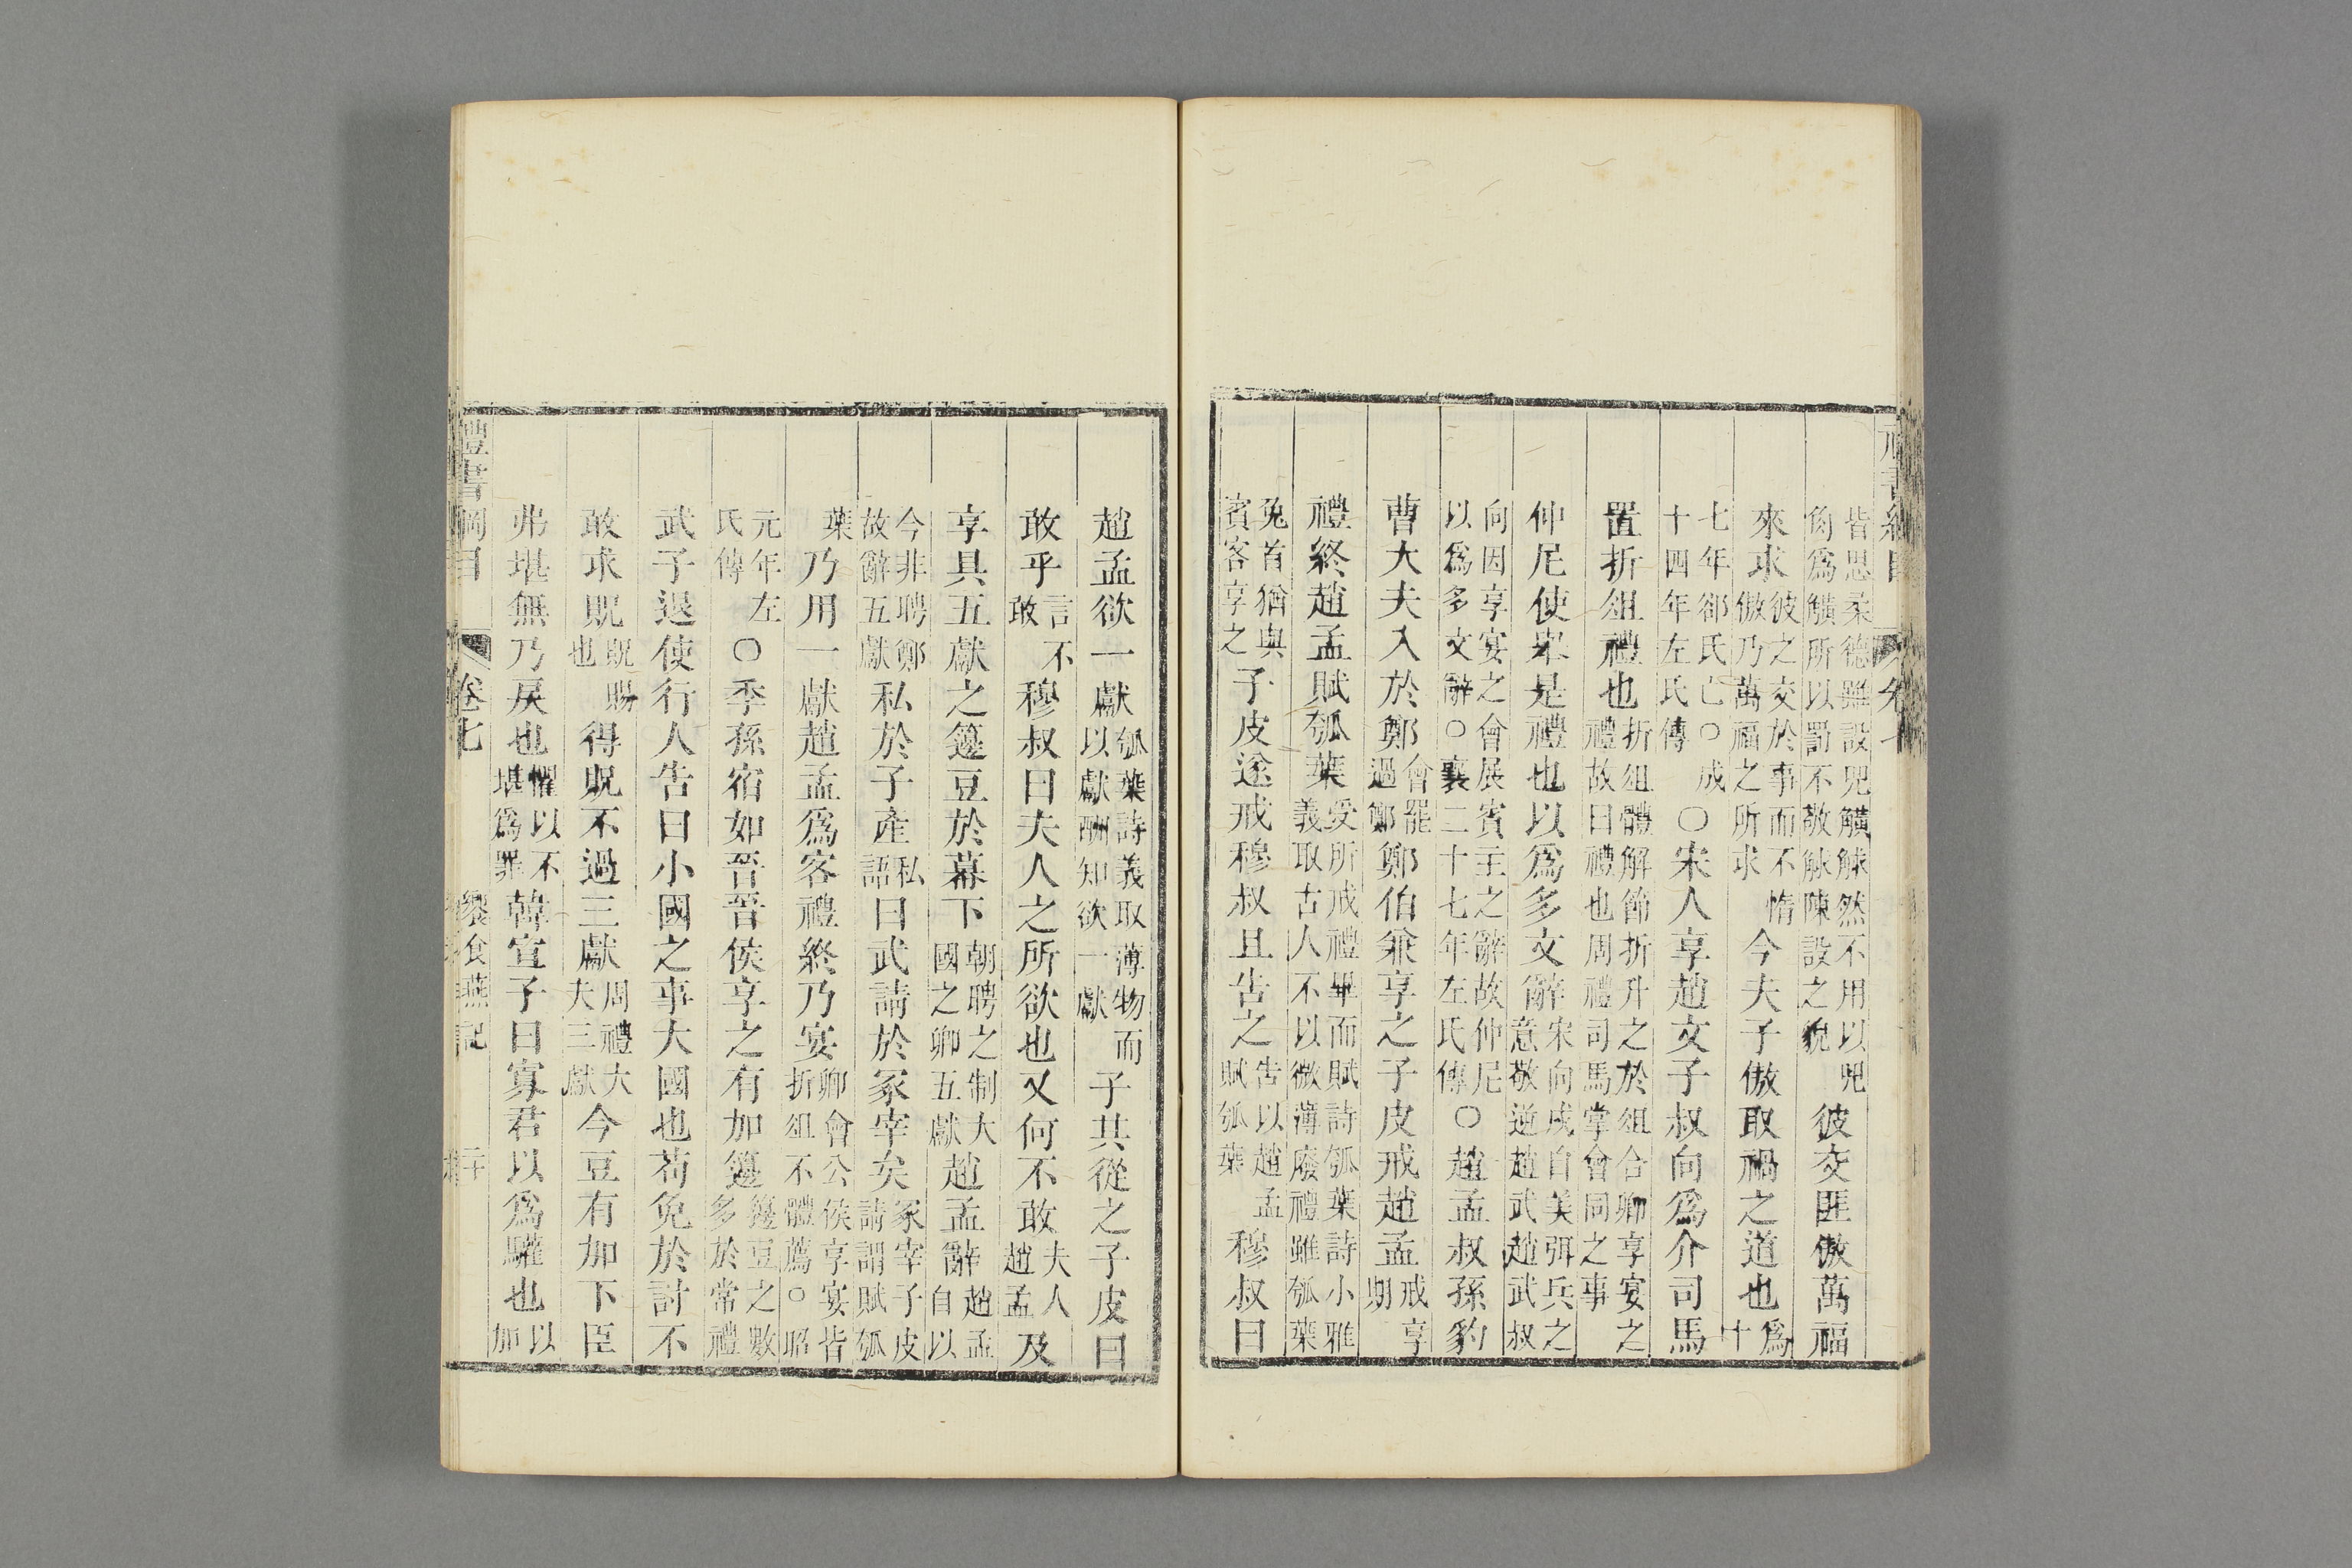 皆思柔德雖設兕觵觩然不用以兕角爲觵所以罰不敬觩陳設之貌彼交匪傲萬福
來求彼之交於事而不惰傲乃萬福之所求今夫子傲取禍之道也爲十
七年郤氏亡○成十四年左氏傳○宋人享趙文子叔向爲介司馬
置折俎禮也折俎體解節折升之於俎合卿享宴之禮故曰禮也周禮司馬掌會同之事
仲尼使舉是禮也以爲多文辭宋向戌自美弭兵之意敬逆趙武趙武叔
向因享宴之會展賓主之辭故仲尼以爲多文辭○襄二十七年左氏傳○趙孟叔孫豹
曹大夫入於鄭會罷過鄭鄭伯兼享之子皮戒趙孟戒享期
禮終趙孟賦瓠葉受所戒禮畢而賦詩瓠葉詩小雅義取古人不以微薄廢禮雖瓠葉
兔首猶與賓客享之子皮遂戒穆叔且告之告以趙孟賦瓠葉穆叔曰
趙孟欲一獻瓠葉詩義取薄物而以獻酬知欲一獻子其從之子皮曰
敢乎言不敢穆叔曰夫人之所欲也又何不敢夫人趙孟及
享具五獻之籩豆於幕下朝聘之制大國之卿五獻趙孟辭趙孟自以
今非聘鄭故辭五獻私於子產私語曰武請於冢宰矣冢宰子皮請謂賦瓠
葉乃用一獻趙孟爲客禮終乃宴卿會公侯享宴皆折俎不體薦○昭
元年左氏傳○季孫宿如晉晉侯享之有加籩籩豆之數多於常禮
武子退使行人告曰小國之事大國也苟免於討不
敢求貺貺賜也得貺不過三獻周禮大夫三獻今豆有加下臣
弗堪無乃戾也懼以不堪爲罪韓宣子曰寡君以爲驩也以加
禮書綱目 卷七 饗食燕記 二十